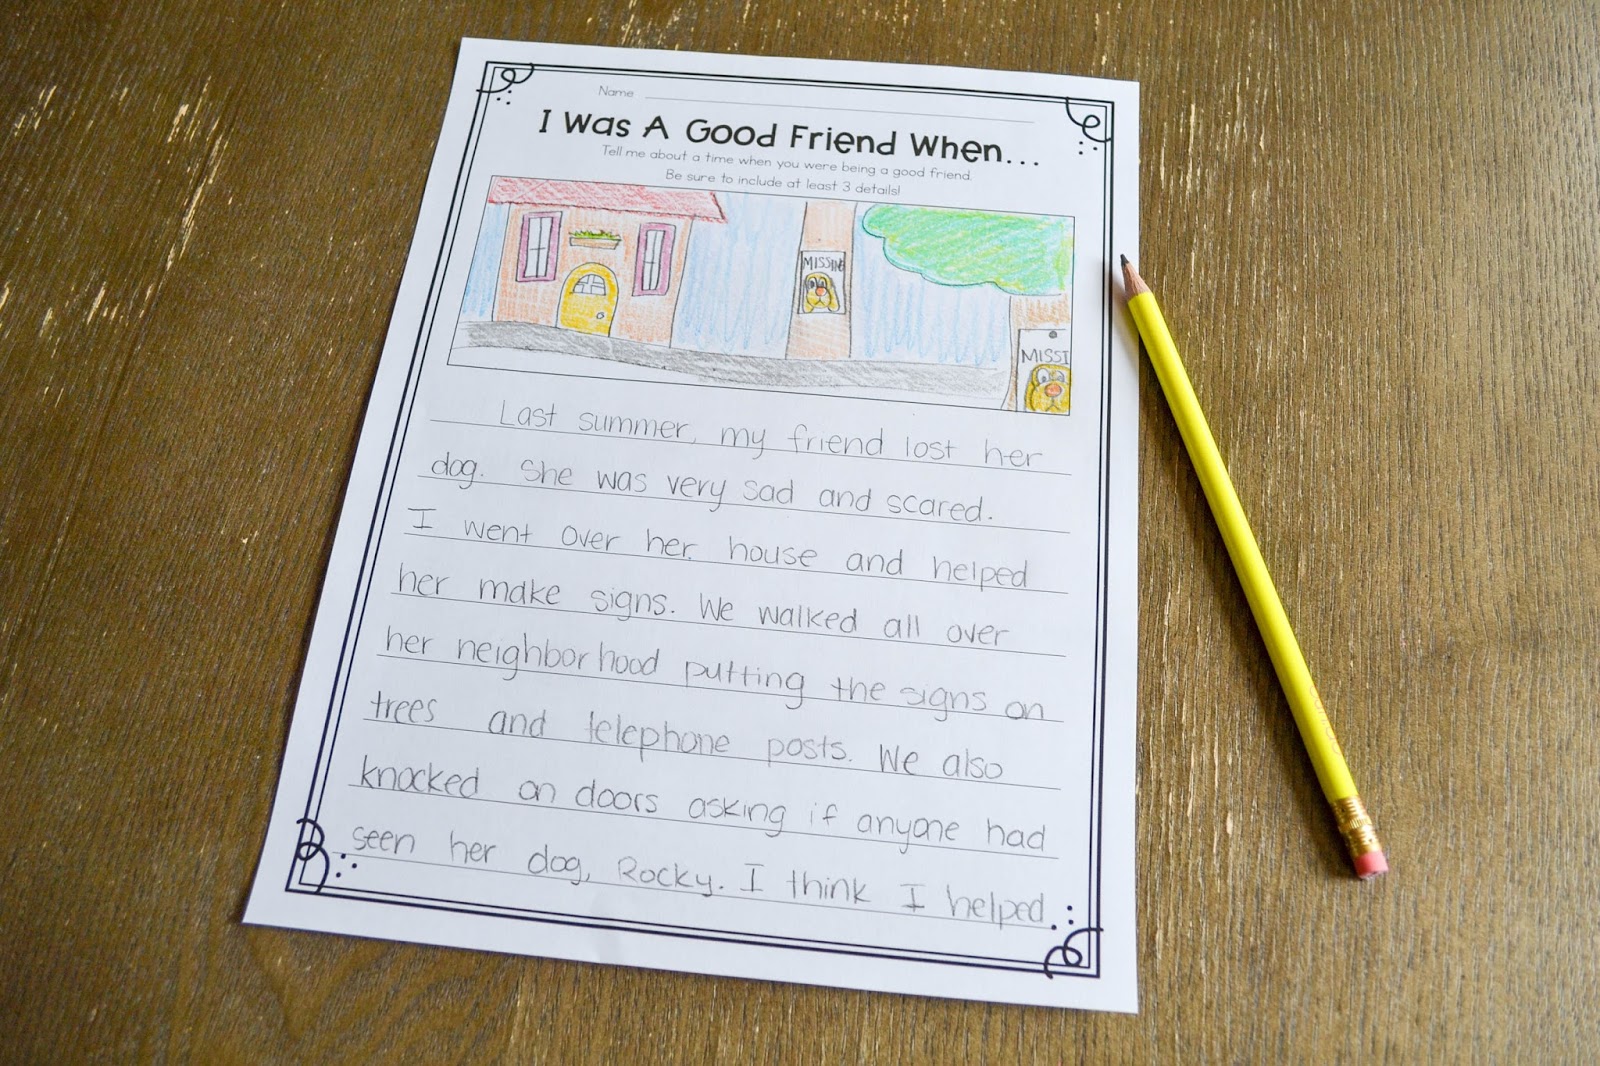 Name
I Was A Good Friend When...
Tell me about a time when you were being a good friend.
Be sure to include at least 3 details!
MISSING
MISSI
Last summer, my friend lost her
dog. She was very sad and scared.
I went over her house and helped
her make signs. We walked all over
her neighborhood putting the signs on
trees and telephone posts. We also
knocked on doors asking if anyone had
seen her dog, Rocky. I think I helped.